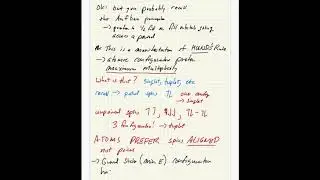 Ok: but you probably recall
the Aufbau principle
→ prefer to ½ fill or fill orbitals going
across a period
This is a manifestation of HUND'S Rule
→ atomic configurations prefer
maximum multiplicity
What is this? singlet, triplet, etc
recall → paired spins ↑↓ one config
→ singlet
unpaired spins ↑↑, ↓↓, ↑↓-↑↓
3 configurations! → triplet
ATOMS PREFER spins ALIGNED
not paired
→ Ground state (min E) configuration
has